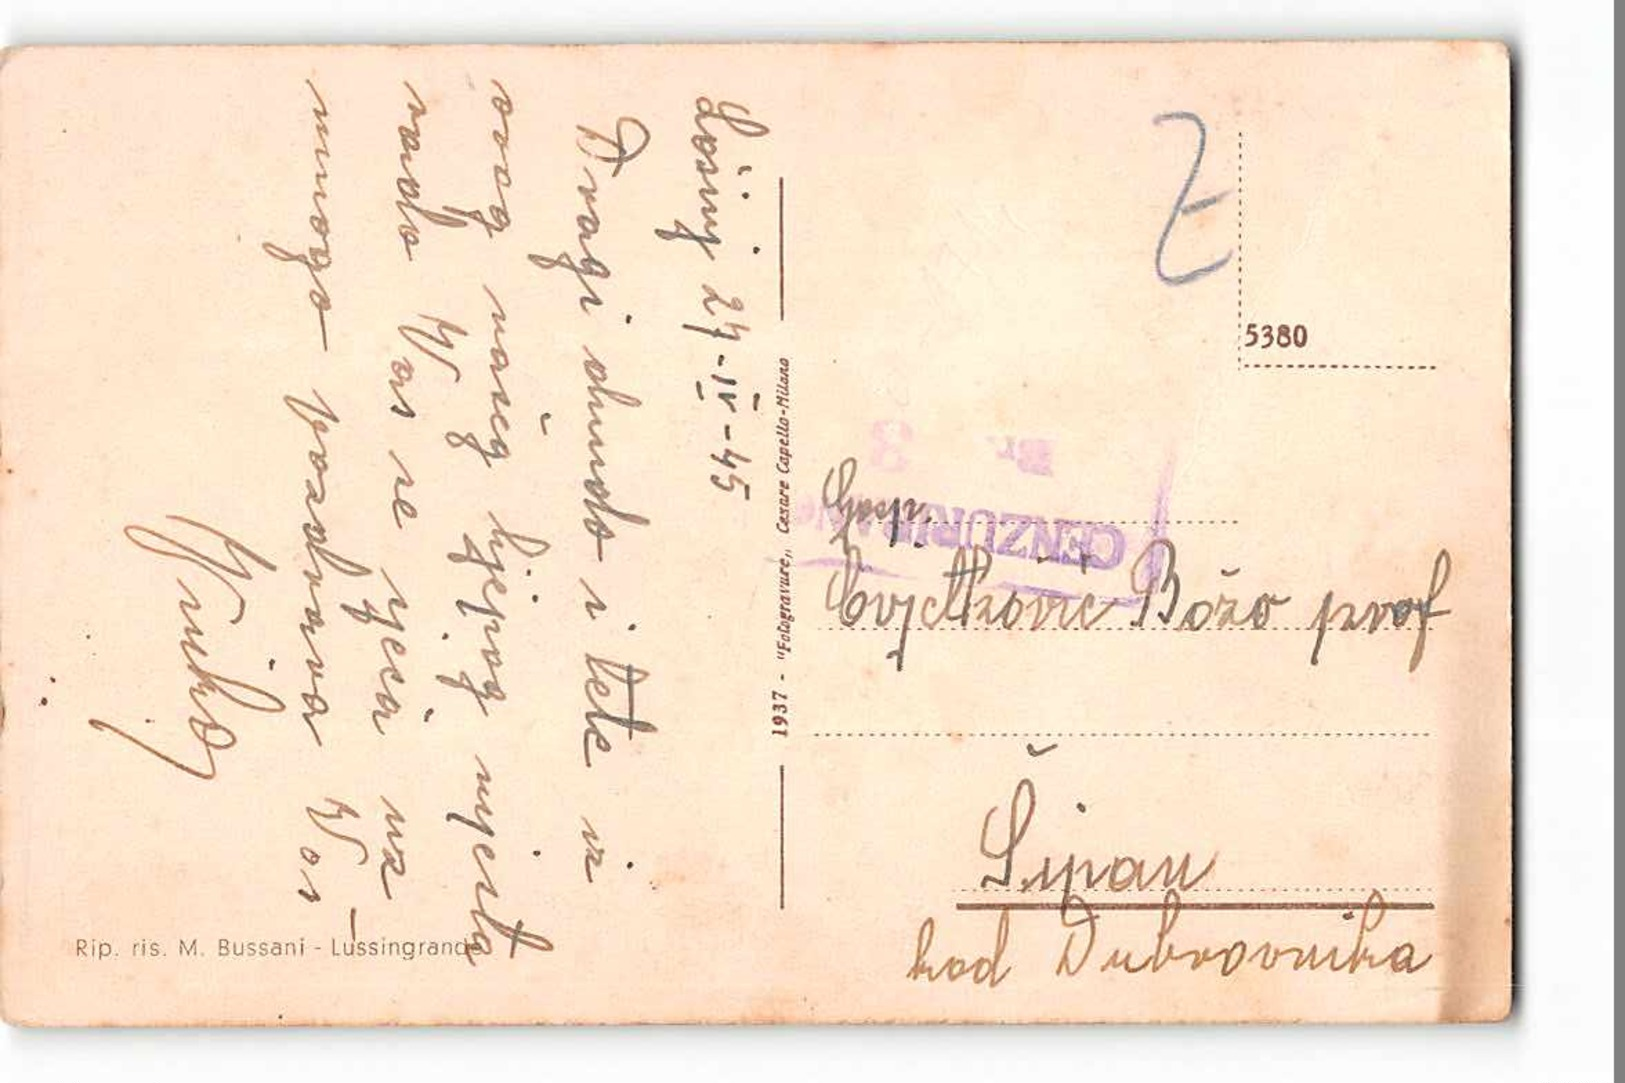 Lošinj 24-IV-45
Dragi dundo i tete iz
ovog našeg lijepog mjesta
rado Vas se sjeća uz
mnogo pozdrava Vas
1937 - "Fotogravure„ Cesare Capello-Milano
Rip. ris. M. Bussani - Lussingrande
5380
Br. 3
CENZURIRANO
Gosp.
Cvjetković Božo prof
Šipan
kod Dubrovnika